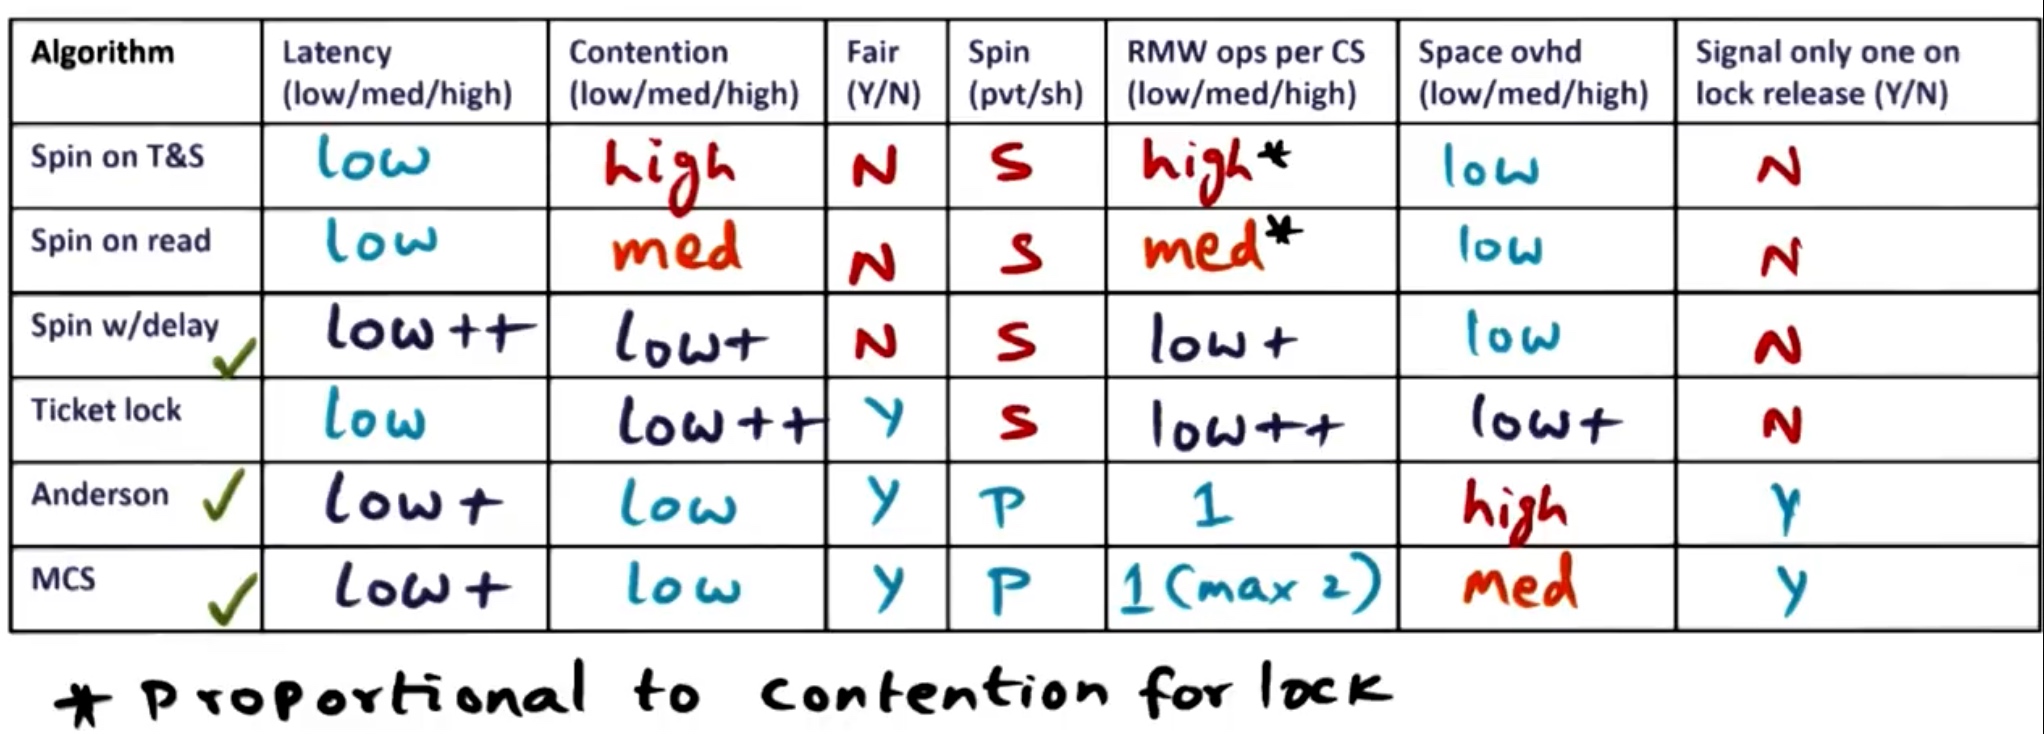 Algorithm Latency (low/med/high) Contention (low/med/high) Fair (Y/N) Spin (pvt/sh) RMW ops per CS (low/med/high) Space ovhd (low/med/high) Signal only one on lock release (Y/N)
Spin on T&S low high N S high* low N
Spin on read low med N S med* low N
Spin w/delay ✓ low++ low+ N S low+ low N
Ticket lock low low++ Y S low++ low+ N
Anderson ✓ low+ low Y P 1 high Y
MCS ✓ low+ low Y P 1 (max 2) med Y
* Proportional to contention for lock